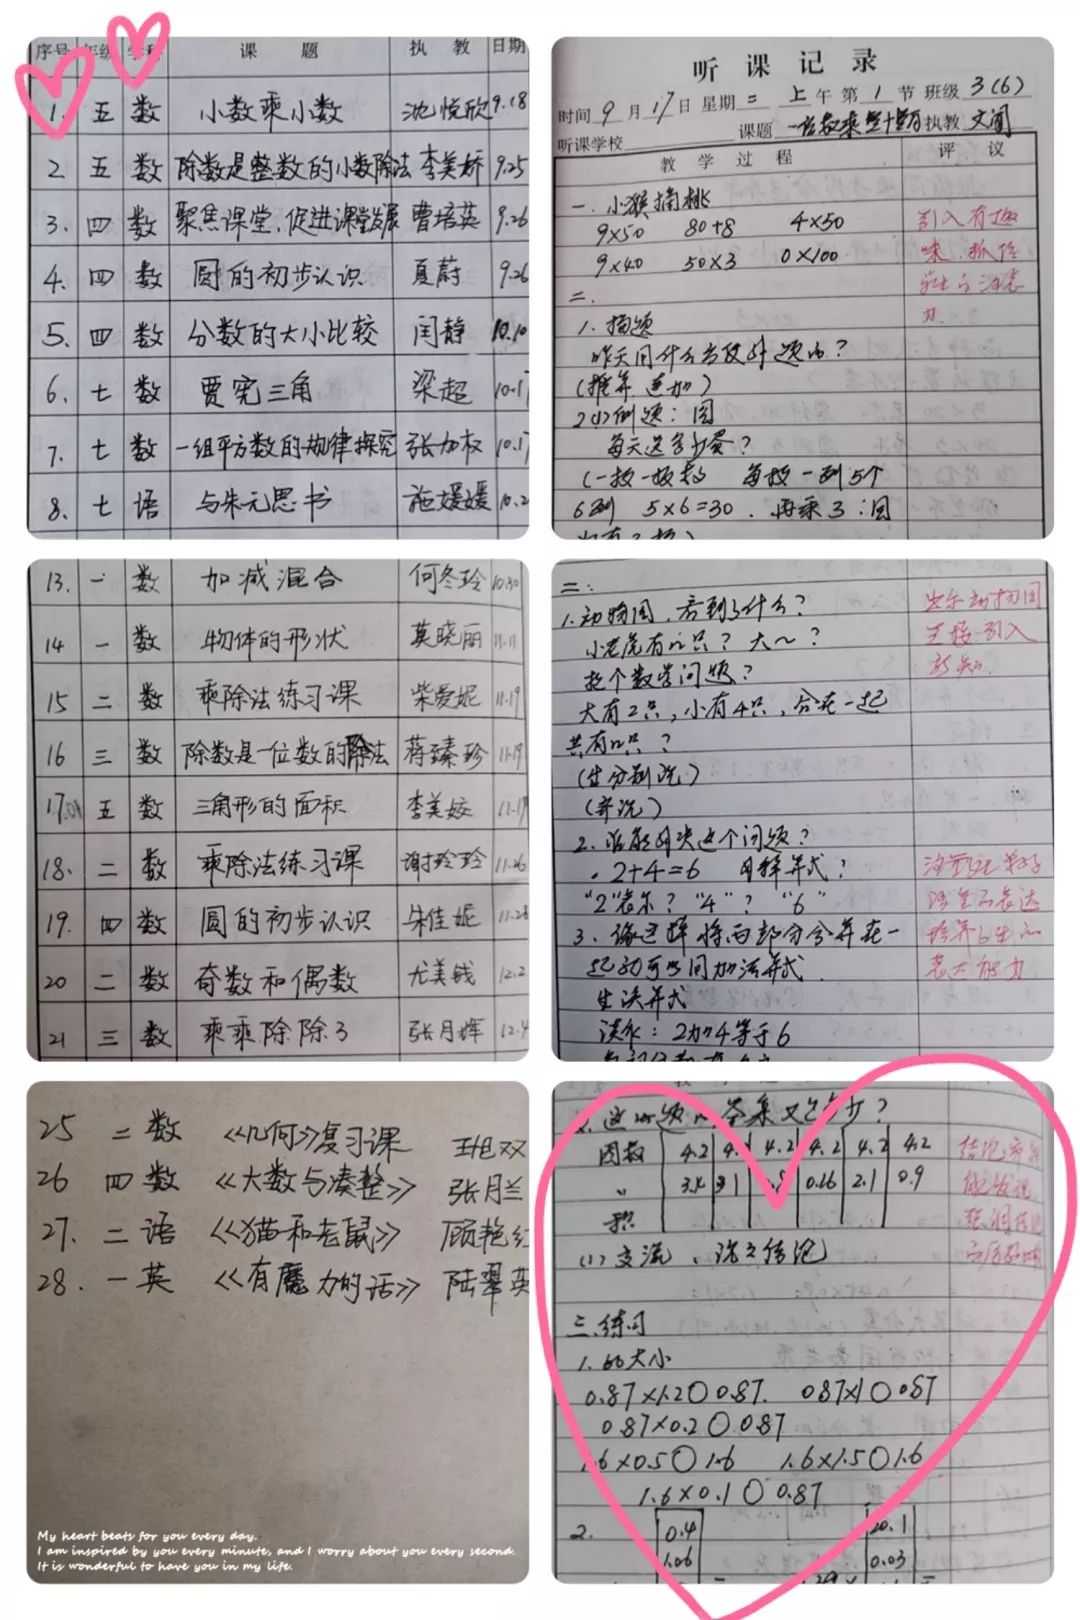 序号 年级 学科 课题 执教 日期
1. 五 数 小数乘小数 沈悦欣 9.18
2 五 数 除数是整数的小数除法 李美娇 9.25
3. 四 数 聚焦课堂,促进课堂发展 曹培英 9.26
4. 四 数 圆的初步认识 夏蔚 9.26
5. 四 数 分数的大小比较 闫静 10.10
6. 七 数 贾宪三角 梁超 10.1
7. 七 数 一组平方数的规律探究 张加权 10.1
8. 七 语 与朱元思书 施媛媛 10.2
听课记录
时间 9月17日 星期二 上午 第1节 班级 3(6)
听课学校 课题 执教 文闻
教学过程 评议
一.小猴摘桃
9×50 80+8 4×50
9×40 50×3 0×100
引入有趣
味.抓住
学生的注意
力.
二.
1.
(推车 连加)
2(1)例题:图
每天送多少蛋?
每板一列5个
6列 5×6=30.再乘3:图
13. 一 数 加减混合 何冬玲 10.30
14 一 数 物体的形状 莫晓丽 11.11
15 二 数 乘除法练习课 柴爱妮 11.19
16 三 数 除数是一位数的除法 蒋臻珍 11.19
17. 五 数 三角形的面积 李美姣 11.19
18. 二 数 乘除法练习课 谢玲玲 11.26
19. 四 数 圆的初步认识 朱佳妮 11.28
20 二 数 奇数和偶数 尤美钱 12.2
21 三 数 乘乘除除3 张月辉 12.4
二:
1.动物园,看到了什么?
小老虎有几只?大~?
提个数学问题?
大有2只,小有4只,合在一起
共有几只?
(生分别说)
(齐说)
出示动物园
直接引入
新知.
2.谁能解决这个问题?
2+4=6 用算式?
“2”表示?“4”?“6”
3.像这样将两部分合并在一
起就可以用加法算式
生读算式
读作:2加4等于6
培养学生的
表达能力
25 二 数 《几何》复习课
26 四 数 《大数与凑整》 张月兰
27. 二 语 《猫和老鼠》 顾艳红
28. 一 英 《有魔力的话》 陆翠英
My heart beats for you every day.
I am inspired by you every minute, and I worry about you every second.
It is wonderful to have you in my life.
因数 4.2 4. 4.2 4.2 4.2 4.2
〃 3.1 0.16 2.1 0.9
积
(1)交流、说说结论
三.练习
1.比大小
0.87×1.2○0.87. 0.87×1○0.87
0.87×0.2○0.87
1.6×0.5○1.6 1.6×1.5○1.6
1.6×0.1○0.87
2. 0.4 20.1
1.06 0.03